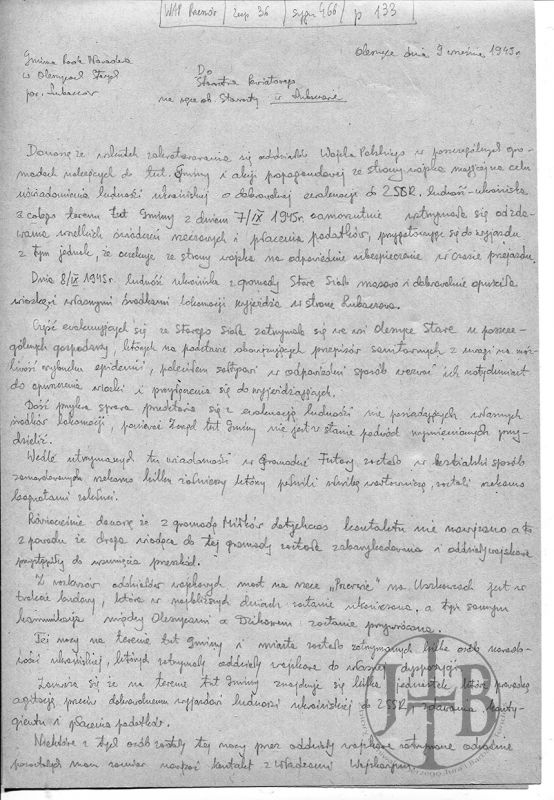 WAP Rzeszów / Zesp 36 / Sygn 466 / p 133
Oleszyce dnia 9 września 1945 r.
Gmina Rada Narodowa
w Oleszycach Zarząd
pow. Lubaczów
Do
Starostwa Powiatowego
na ręce ob. Starosty w Lubaczowie
Donoszę że wskutek zakwaterowania się oddziałów Wojska Polskiego w poszczególnych gro-
madach należących do tut. Gminy i akcji propagandowej ze strony wojska mającej na celu
uświadomienia ludności ukraińskiej o dobrowolnej ewakuacji do ZSSR. ludność ukraińska
z całego terenu tut Gminy z dniem 7/IX 1945r. samorzutnie wstrzymała się od zda-
wania wszelkich świadczeń rzeczowych i płacenia podatków, przygotowując się do wyjazdu
z tym jednak, że oczekuje ze strony wojska na odpowiednie ubezpieczenie w czasie przejazdu.
Dnia 8/IX 1945r. ludność ukraińska z gromady Stare Sioło masowo i dobrowolnie opuściła
wioskę, i własnymi środkami lokomocji wyjeżdża w stronę Lubaczowa.
Część ewakuujących się ze Starego Sioła zatrzymała się we wsi Oleszyce Stare u poszcze-
gólnych gospodarzy, których na podstawie obowiązujących przepisów sanitarnych z uwagi na moż-
liwość wybuchu epidemii, poleciłem sołtysowi w odpowiedni sposób wezwać ich natychmiast
do opuszczenia wioski i przyłączenia się do wyjeżdżających.
Dość przykra sprawa przedstawia się z ewakuacją ludności nie posiadających własnych
środków lokomocji, ponieważ Zarząd tut Gminy nie jest w stanie podwód wymienionych przy-
dzielić.
Wedle otrzymanych tu wiadomości w Gromadzie Futory zostało w bestialski sposób
zamordowanych rzekomo kilku żołnierzy którzy pełnili służbę wartowniczą, zostali rzekomo
bagnetami zakłuci.
Równocześnie donoszę że z gromadą Miłków dotychczas kontaktu nie nawiązano a to
z powodu że droga wiodąca do tej gromady została zabarykadowana i oddziały wojskowe
przystąpiły do usunięcia przeszkód.
Z rozkazów oddziałów wojskowych most na rzece „Przerwie" na Uszkowcach jest w
trakcie budowy, która w najbliższych dniach zostanie ukończona, a tym samym
komunikacja między Oleszycami a Dzikowem zostanie przywrócona.
Tej nocy na terenie tut Gminy i miasta zostało zatrzymanych kilka osób narodo-
wości ukraińskiej, których zatrzymały oddziały wojskowe do własnej dyspozycji.
Zaznacza się że na terenie tut Gminy znajduje się kilka jednostek które prowadzą
agitację przeciw dobrowolnemu wyjazdowi ludności ukraińskiej do ZSSR, zdawania konty-
gentu i płacenia podatków.
Niektóre z tych osób zostały tej nocy przez oddziały wojskowe zatrzymane odnośnie
pozostałych mam zamiar nawiązać kontakt z Władzami Wojskowymi.
JTB